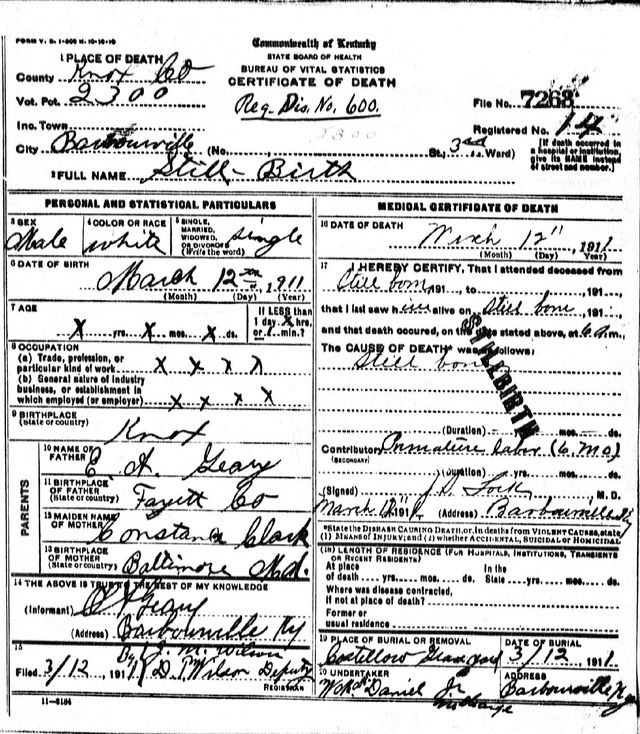 FORM V. S. 1-200 M. 10-10-10
Commonwealth of Kentucky
STATE BOARD OF HEALTH
BUREAU OF VITAL STATISTICS
CERTIFICATE OF DEATH
1 PLACE OF DEATH
County Knox Co
Vot. Pct. 2300
Reg. Dis. No. 600.
File No. 7268
2300
Registered No. 14
Inc. Town
City Barbourville (No. St.; 3rd Ward)
[If death occurred in a hospital or institution, give its NAME instead of street and number.]
2 FULL NAME Still-Birth
PERSONAL AND STATISTICAL PARTICULARS
3 SEX
Male
4 COLOR OR RACE
white
5 SINGLE, MARRIED, WIDOWED, OR DIVORCED (Write the word)
single
6 DATE OF BIRTH
March 12th, 1911
(Month) (Day) (Year)
7 AGE
X yrs. X mos. X ds.
If LESS than 1 day X hrs, or min.?
8 OCCUPATION
(a) Trade, profession, or particular kind of work X X X X
(b) General nature of industry business, or establishment in which employed (or employer) X X X X
9 BIRTHPLACE
(State or country)
Knox
PARENTS
10 NAME OF FATHER
E. A. Geary
11 BIRTHPLACE OF FATHER (State or country)
Fayett Co
12 MAIDEN NAME OF MOTHER
Constance Clark
13 BIRTHPLACE OF MOTHER (State or country)
Baltimore Md.
14 THE ABOVE IS TRUE TO THE BEST OF MY KNOWLEDGE
(Informant) Geary
(Address) Barbourville Ky
15
By J. M. Wilson
Filed 3/12, 1911 D. Wilson Deputy
REGISTRAR
11-6184
MEDICAL CERTIFICATE OF DEATH
16 DATE OF DEATH
12", 1911
(Month) (Day) (Year)
17 I HEREBY CERTIFY, That I attended deceased from
Still born, 191 , to , 191 ,
that I last saw him alive on Still born, 191 ,
and that death occured, on the date stated above, at 6 a m.
The CAUSE OF DEATH* was as follows:
Still born
STILLBIRTH
(Duration) yrs. mos. ds.
Contributory Premature labor (6 mo)
(SECONDARY)
(Duration) yrs. mos. ds.
(Signed) J. D. Lock, M. D.
March 12 1911 (Address) Barbourville Ky
*State the DISEASE CAUSING DEATH, or, in deaths from VIOLENT CAUSES, state (1) MEANS OF INJURY; and (2) whether ACCIDENTAL, SUICIDAL or HOMICIDAL
(18) LENGTH OF RESIDENCE (FOR HOSPITALS, INSTITUTIONS, TRANSIENTS OR RECENT RESIDENTS)
At place of death yrs. mos. ds.
In the State yrs. mos. ds.
Where was disease contracted, if not at place of death?
Former or usual residence
19 PLACE OF BURIAL OR REMOVAL
Costellow Graveyard
DATE OF BURIAL
3/12, 1911
20 UNDERTAKER
McDaniel Jr
ADDRESS
Barbourville Ky